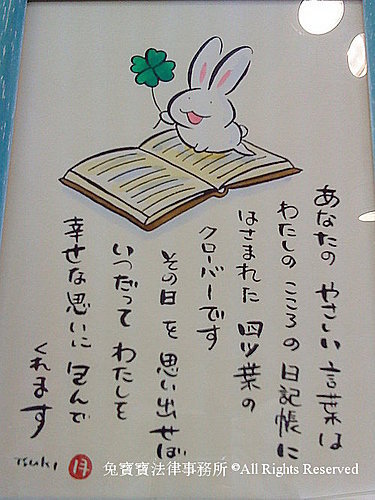 あなたの やさしい 言葉は
わたしの こころの 日記帳に
はさまれた 四ツ葉の
クローバーです
その日を 思い出せば
いつだって わたしを
幸せな思いに 包んで
くれます
Tsuki
月
兔寶寶法律事務所 ©All Rights Reserved